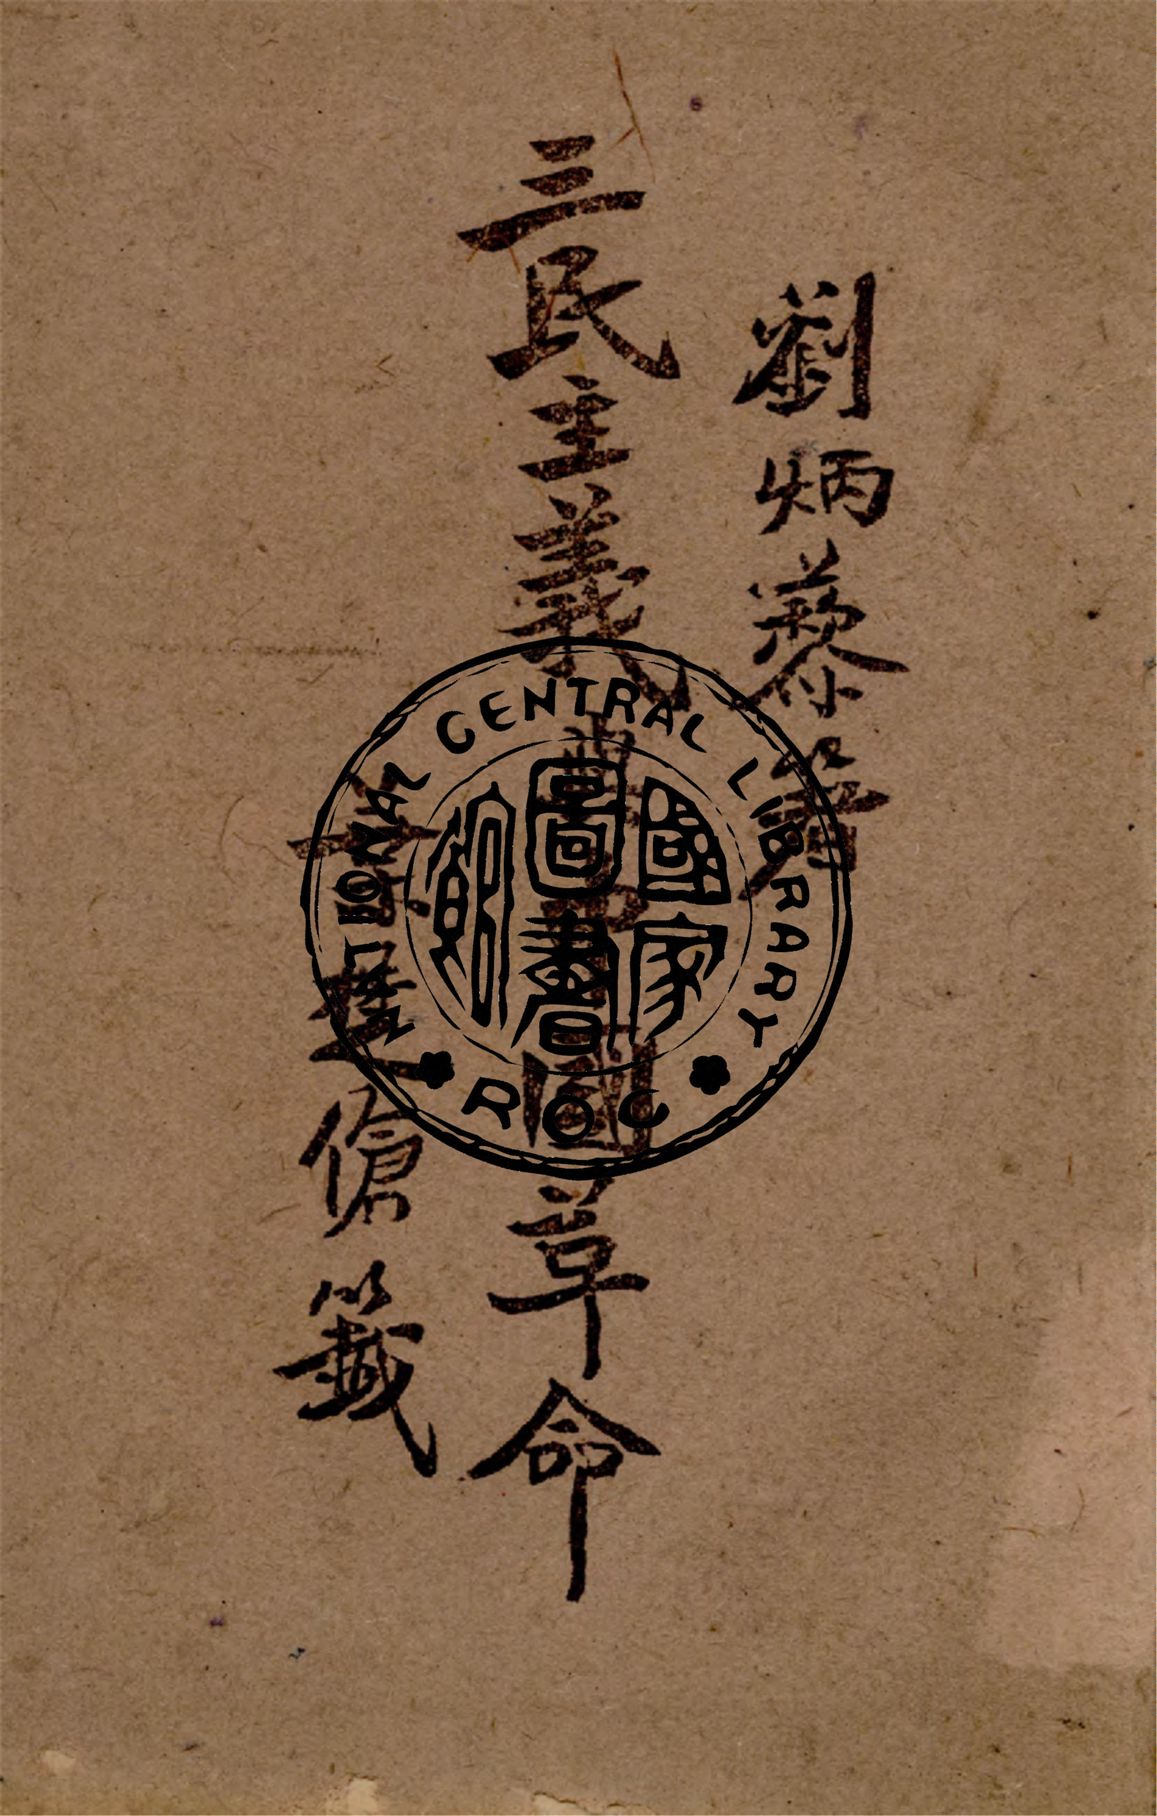 劉炳藜著
三民主義與中國革命
葉楚傖籤
NATIONAL CENTRAL LIBRARY
國家
圖書
館
ROC